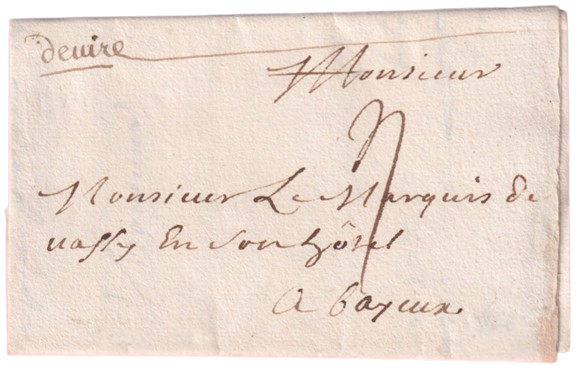 devire
Monsieur
Monsieur Le Marquis de
vassy En son hôtel
A bayeux